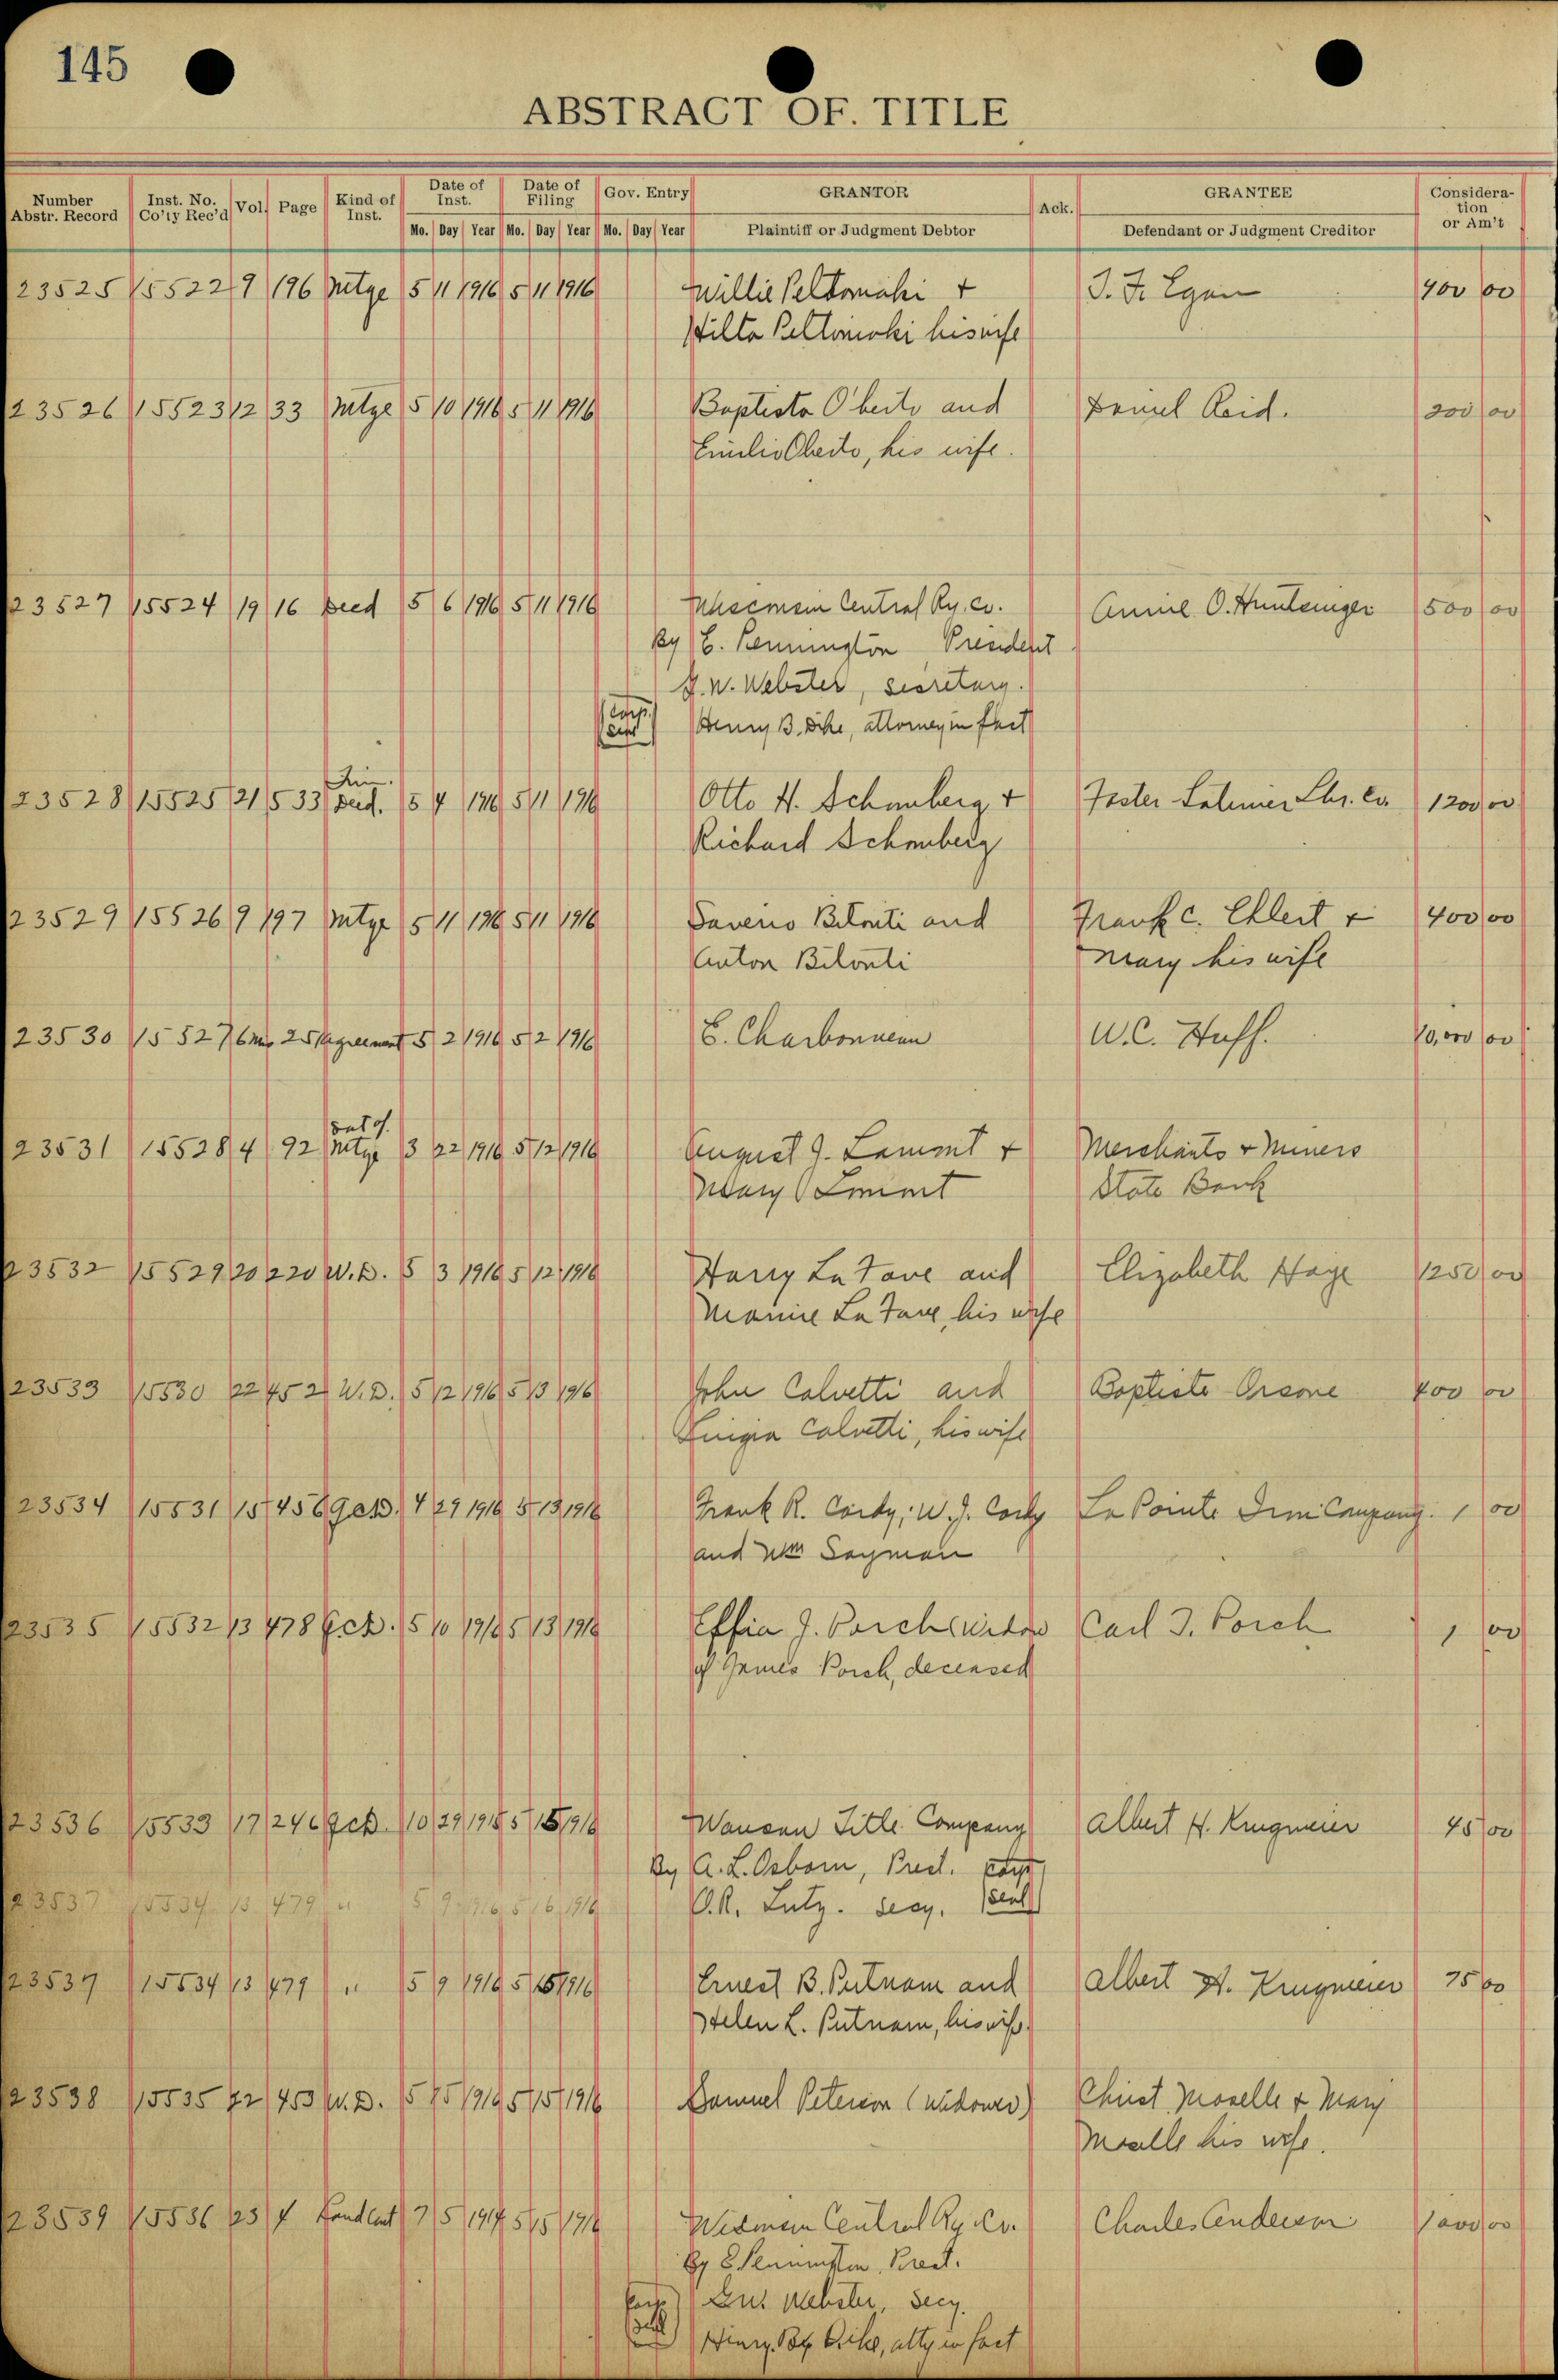 145
ABSTRACT OF. TITLE
Number Abstr. Record Inst. No. Co'ty Rec'd Vol. Page Kind of Inst. Date of Inst. Date of Filing Gov. Entry GRANTOR Ack. GRANTEE Considera-tion or Am't
Mo. Day Year Mo. Day Year Mo. Day Year Plaintiff or Judgment Debtor Defendant or Judgment Creditor
23525 15522 9 196 Mtge 5 11 1916 5 11 1916 Willie Peltomaki + J. F. Egan 400 00
Hilta Peltomaki his wife
23526 15523 12 33 Mtge 5 10 1916 5 11 1916 Baptista Oberto and Daniel Reid. 200 00
Emilia Oberto, his wife.
23527 15524 19 16 Deed 5 6 1916 5 11 1916 Wisconsin Central Ry. Co. Annie O. Huntsinger 500 00
By E. Pennington President
G. W. Webster, secretary.
(Corp. Seal) Henry B. Dike, attorney in fact
Tim.
23528 15525 21 533 Deed. 5 4 1916 5 11 1916 Otto H. Schomberg + Foster Latimer Lbr. Co. 1200 00
Richard Schomberg
23529 15526 9 197 Mtge 5 11 1916 5 11 1916 Saverio Bilonti and Frank C. Ehlert + 400 00
Anton Bilonti Mary his wife
23530 15527 6 Mis 25 Agreement 5 2 1916 5 2 1916 E. Charbonneau W. C. Huff. 10,000 00
Sat of.
23531 15528 4 92 Mtge 3 22 1916 5 12 1916 August J. Lamont + Merchants + Miners
Mary Lamont State Bank
23532 15529 20 220 W. D. 5 3 1916 5 12 1916 Harry La Fave and Elizabeth Hage 1250 00
Mamie La Fave, his wife
23533 15530 22 452 W. D. 5 12 1916 5 13 1916 John Calvetti and Baptiste Orsone 400 00
Luigia Calvetti, his wife
23534 15531 15 456 QCD. 4 29 1916 5 13 1916 Frank R. Cordy; W. J. Cordy La Pointe Iron Company. 1 00
and Wm Sayman
23535 15532 13 478 QCD. 5 10 1916 5 13 1916 Effia J. Porch (widow Carl J. Porch 1 00
of James Porch, deceased
23536 15533 17 246 QCD. 10 29 1915 5 15 1916 Wausau Title Company Albert H. Krugmeier 45 00
By A. L. Osborn, Prest. Corp
23537 15534 13 479 " 5 9 1916 5 16 1916 O. R. Lutz. Secy. Seal
23537 15534 13 479 " 5 9 1916 5 15 1916 Ernest B. Putnam and Albert H. Krugmeier 75 00
Helen L. Putnam, his wife.
23538 15535 22 453 W. D. 5 15 1916 5 15 1916 Samuel Peterson (widower) Christ Moselle + Mary
Moselle his wife.
23539 15536 23 4 Land Cont 7 5 1914 5 15 1916 Wisconsin Central Ry. Co. Charles Anderson
By E. Pennington, Prest.
(Corp. Seal) Webster, Secy.
Henry B. Dike, atty in fact